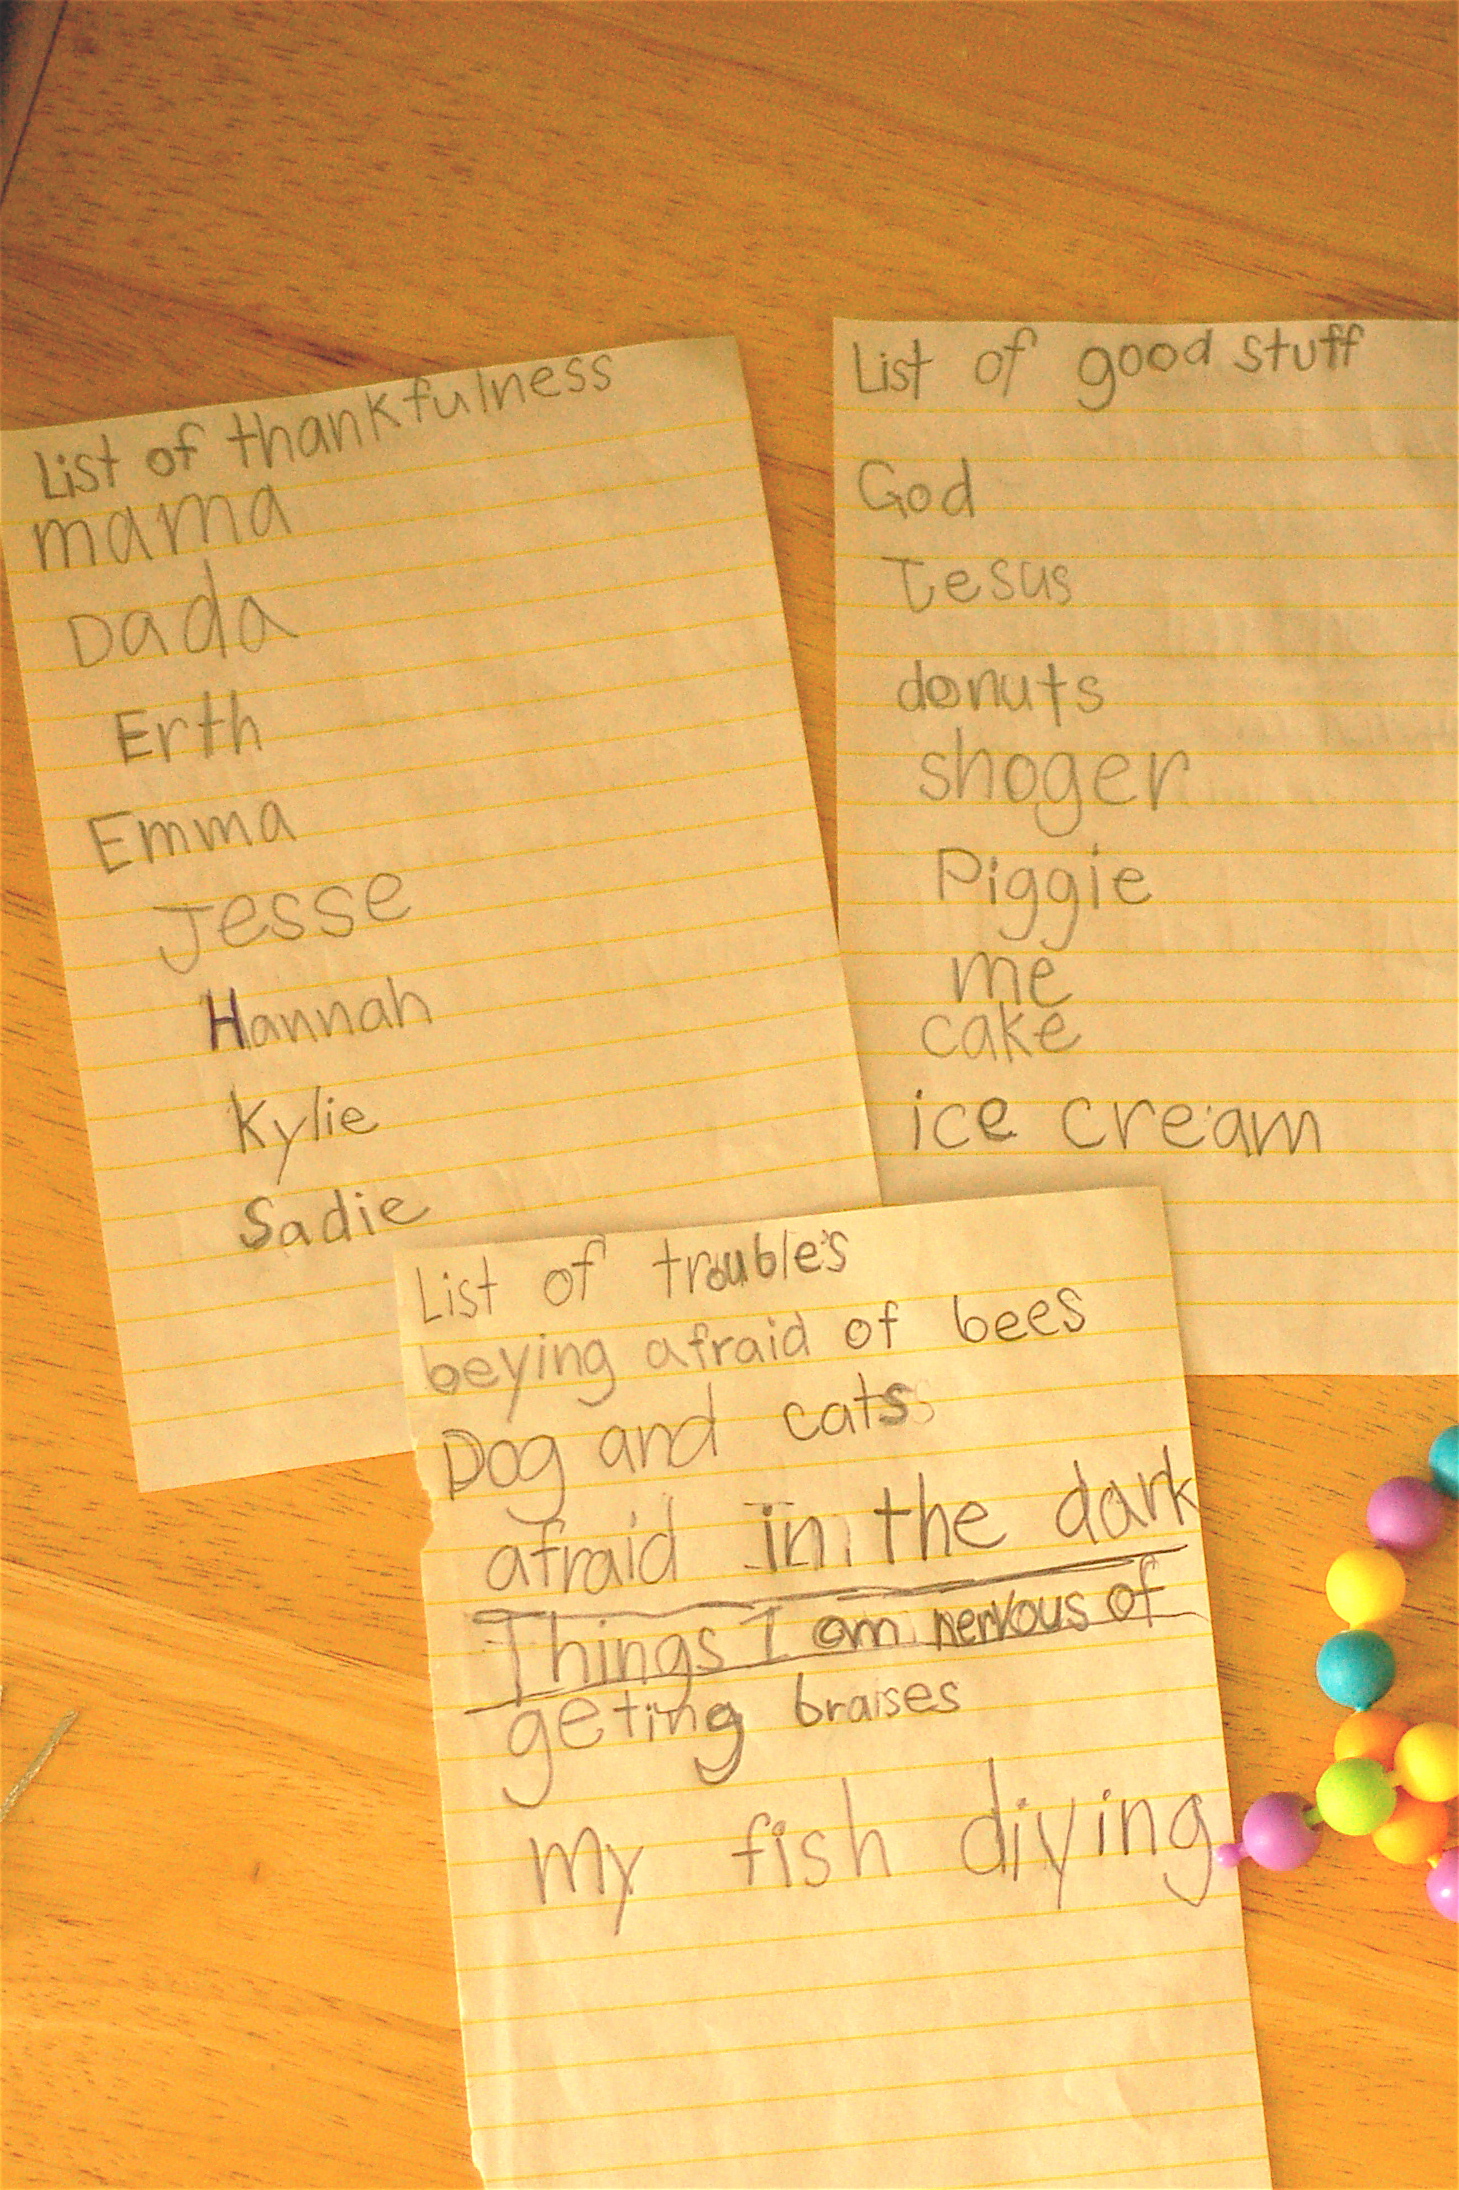 List of thankfulness
mama
Dada
Erth
Emma
Jesse
Hannah
Kylie
Sadie
List of good stuff
God
Jesus
donuts
shoger
Piggie
me
cake
ice cream
List of trouble's
beying afraid of bees
Dog and cats
afraid in the dark
Things I am nervous of
geting braises
my fish diying